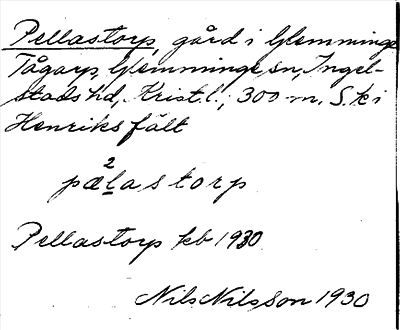 Pellastorp, gård i Glemminge
Tågarp, Glemminge sn, Ingel-
stads hd, Krist. l.; 300 m. S. k i
Henriks fält
2
pælastorp
Pellastorp kb 1930
Nils Nilsson 1930